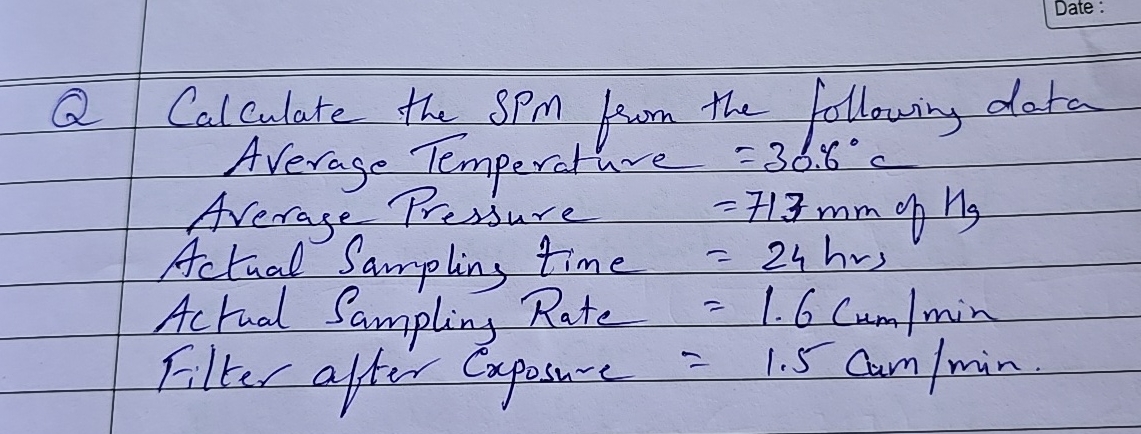 Date :
Q Calculate the SPM from the following data
Average Temperature = 30.8° c
Average Pressure = 713 mm of Hg
Actual Sampling time = 24 hrs
Actual Sampling Rate = 1.6 Cum/min
Filter after Exposure = 1.5 Cum/min.